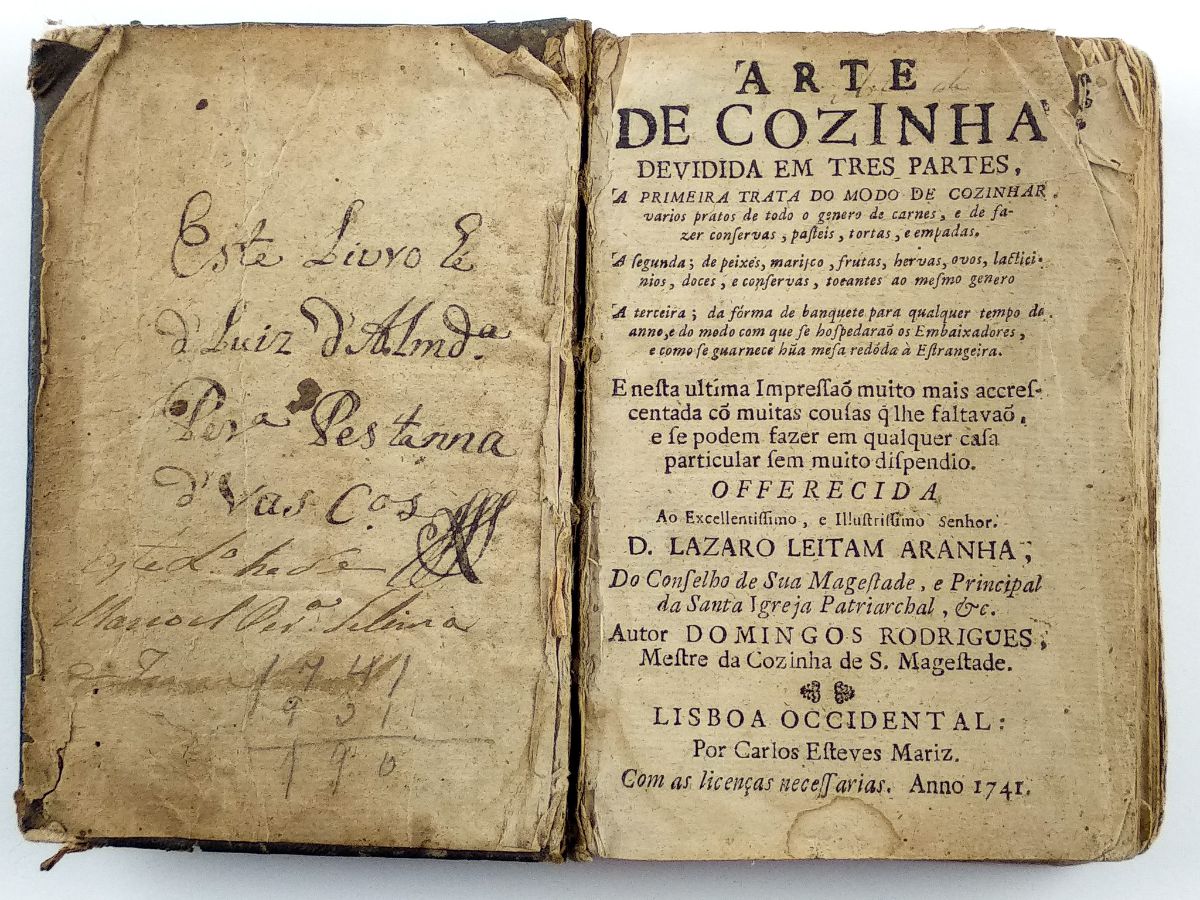 Este Livro he
d'Luiz d'Almdª
Perª Pestanna
d'Vas Cºs
este
Manoel
1741
1931
190
ARTE
DE COZINHA
DEVIDIDA EM TRES PARTES,
A PRIMEIRA TRATA DO MODO DE COZINHAR
varios pratos de todo o genero de carnes, e de fa-
zer conſervas, paſteis, tortas, e empadas.
A ſegunda; de peixes, mariſco, frutas, hervas, ovos, lacticí-
nios, doces, e conſervas, tocantes ao meſmo genero
A terceira; da fórma de banquete para qualquer tempo do
anno, e do modo com que ſe hoſpedaraõ os Embaixadores,
e como ſe guarnece hũa meſa redóda à Eſtrangeira.
E neſta ultima Impreſſaõ muito mais accreſ-
centada cõ muitas couſas q̃ lhe faltavaõ,
e ſe podem fazer em qualquer caſa
particular ſem muito diſpendio.
OFFERECIDA
Ao Excellentiſſimo, e Illuſtriſſimo Senhor.
D. LAZARO LEITAM ARANHA,
Do Conſelho de Sua Mageſtade, e Principal
da Santa Igreja Patriarchal, &c.
Autor DOMINGOS RODRIGUES,
Meſtre da Cozinha de S. Mageſtade.
LISBOA OCCIDENTAL:
Por Carlos Eſteves Mariz.
Com as licenças neceſſarias. Anno 1741.